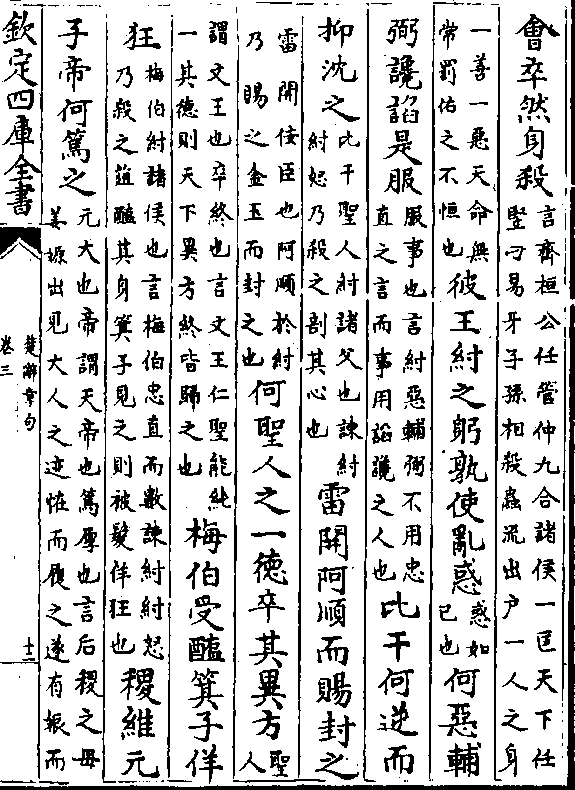 會卒然身殺言齊桓公任管仲九合諸侯一匡天下任豎刁易牙子孫相殺蟲流出戶一人之身
一善一惡天命無常罰佑之不恒也彼王紂之躬孰使亂惑惑如己也何惡輔
弼讒諂是服服事也言紂惡輔弼不用忠直之言而事用諂讒之人也比干何逆而
抑沈之比干聖人紂諸父也諫紂紂怒乃殺之剖其心也雷開阿順而賜封之
雷開佞臣也阿順於紂乃賜之金玉而封之也何聖人之一德卒其異方聖人
謂文王也卒終也言文王仁聖能純一其德則天下異方終皆歸之也梅伯受醢箕子佯
狂梅伯紂諸侯也言梅伯忠直而數諫紂紂怒乃殺之菹醢其身箕子見之則被髮佯狂也稷維元
子帝何篤之元大也帝謂天帝也篤厚也言后稷之母姜嫄出見大人之迹怪而履之遂有娠而
欽定四庫全書
楚辭章句
卷三
十二